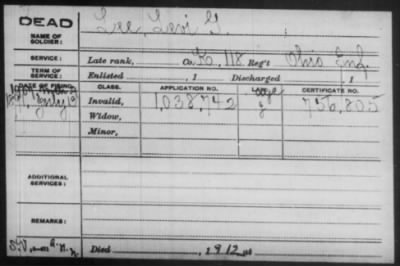 DEAD
NAME OF SOLDIER: Lee, Levi G.
SERVICE: Late rank, Co. K, 118 Reg't Ohio Inf.
TERM OF SERVICE: Enlisted , 1 Discharged , 1
DATE OF FILING. CLASS. APPLICATION NO. LAW. CERTIFICATE NO.
Invalid, 1,038,742 g 756,805
Widow,
Minor,
ADDITIONAL SERVICES:
REMARKS:
Died , 1912, at